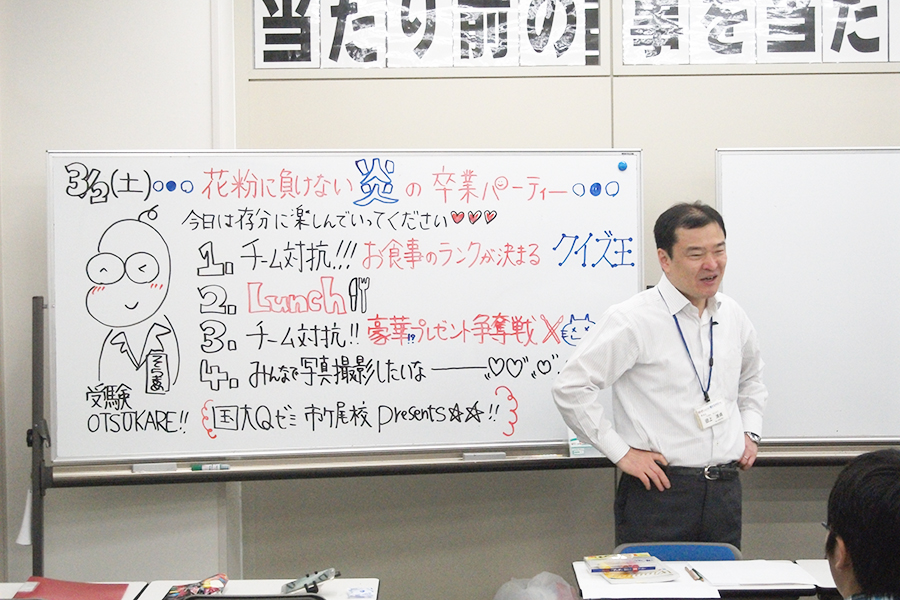 当たり前の
事を当た
3/2(土)○●○ 花粉に負けない 炎 の 卒業パーティー○●○
今日は存分に楽しんでいってください♥♥♥
1. チーム対抗!!! お食事のランクが決まる クイズ王
2. Lunch
3. チーム対抗!! 豪華!?プレゼント争奪戦
4. みんなで写真撮影したいな
受験
OTSUKARE!!
国大Qゼミ 市ケ尾校 presents☆☆!!